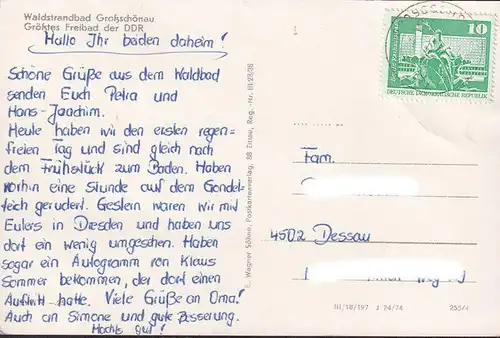 Waldstrandbad Großschönau
Größtes Freibad der DDR
Hallo Ihr beiden daheim!
Schöne Grüße aus dem Waldbad
senden Euch Petra und
Hans-Joachim.
Heute haben wir den ersten regen-
freien Tag und sind gleich nach
dem Frühstück zum Baden. Haben
vorhin eine Stunde auf dem Gondel-
teich gerudert. Gestern waren wir mit
Eulers in Dresden und haben uns
dort ein wenig umgesehen. Haben
sogar ein Autogramm von Klaus
Sommer bekommen, der dort einen
Auftritt hatte. Viele Grüße an Oma!
Auch an Simone und gute Besserung.
Machts gut!
E. Wagner Söhne, Postkartenverlag, 88 Zittau, Reg.-Nr. III/28/38
10
DEUTSCHE DEMOKRATISCHE REPUBLIK
Fam.
4502 Dessau
III/18/197 J 74/74